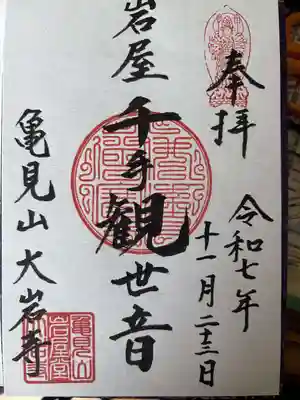 奉拝
令和七年
十一月二十三日
岩屋千手観世音
亀見山大岩寺